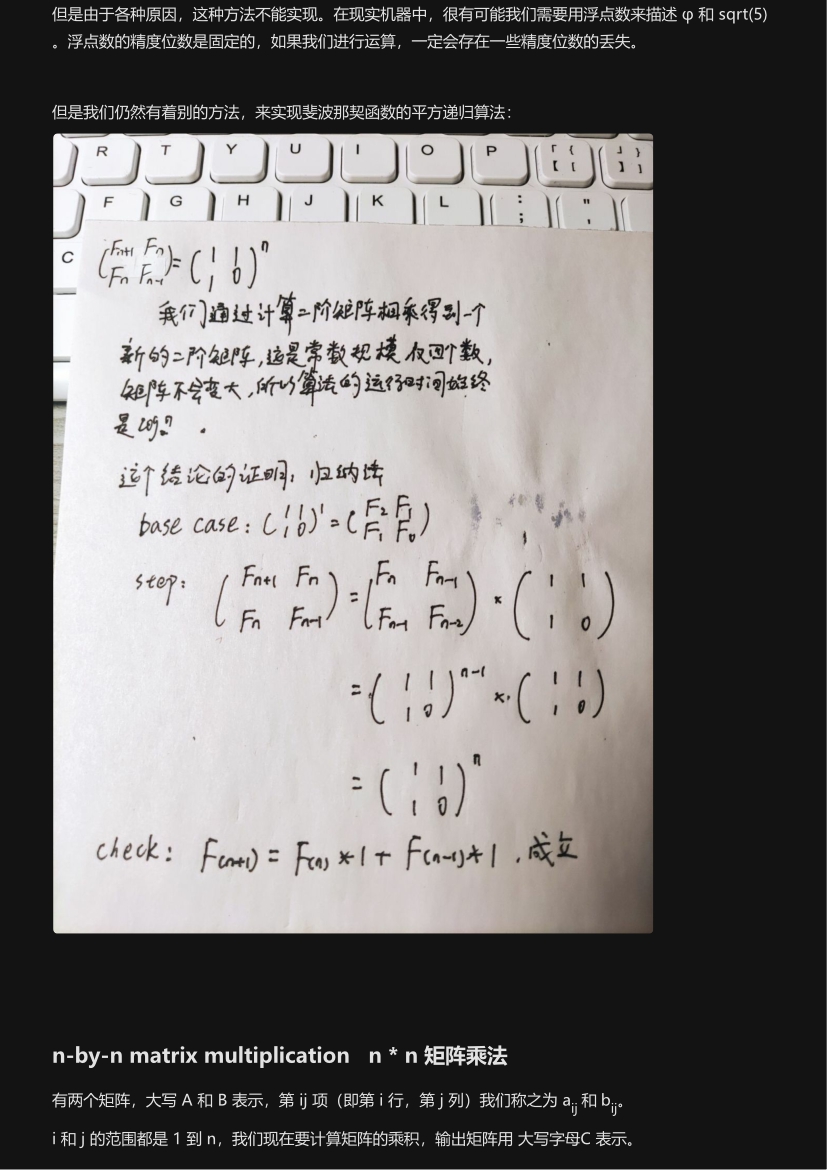 但是由于各种原因，这种方法不能实现。在现实机器中，很有可能我们需要用浮点数来描述 φ 和 sqrt(5)
。浮点数的精度位数是固定的，如果我们进行运算，一定会存在一些精度位数的丢失。
但是我们仍然有着别的方法，来实现斐波那契函数的平方递归算法：
R T Y U I O P 「 { 【 [ 」 } 】 ]
F G H J K L : ; " '
C
(Fn+1 Fn
Fn Fn-1) = (1 1
1 0)^n
我们通过计算二阶矩阵相乘得到一个
新的二阶矩阵，这是常数规模仅四个数，
矩阵不会变大，所以算法的运行时间始终
是
这个结论的证明：归纳法
base case: (1 1
1 0)^1 = (F2 F1
F1 F0)
step: (Fn+1 Fn
Fn Fn-1) = (Fn Fn-1
Fn-1 Fn-2) * (1 1
1 0)
= (1 1
1 0)^n-1 * (1 1
1 0)
= (1 1
1 0)^n
check: F(n+1) = F(n) * 1 + F(n-1) * 1 , 成立
n-by-n matrix multiplication n * n 矩阵乘法
有两个矩阵，大写 A 和 B 表示，第 ij 项（即第 i 行，第 j 列）我们称之为 aij 和 bij。
i 和 j 的范围都是 1 到 n，我们现在要计算矩阵的乘积，输出矩阵用 大写字母C 表示。